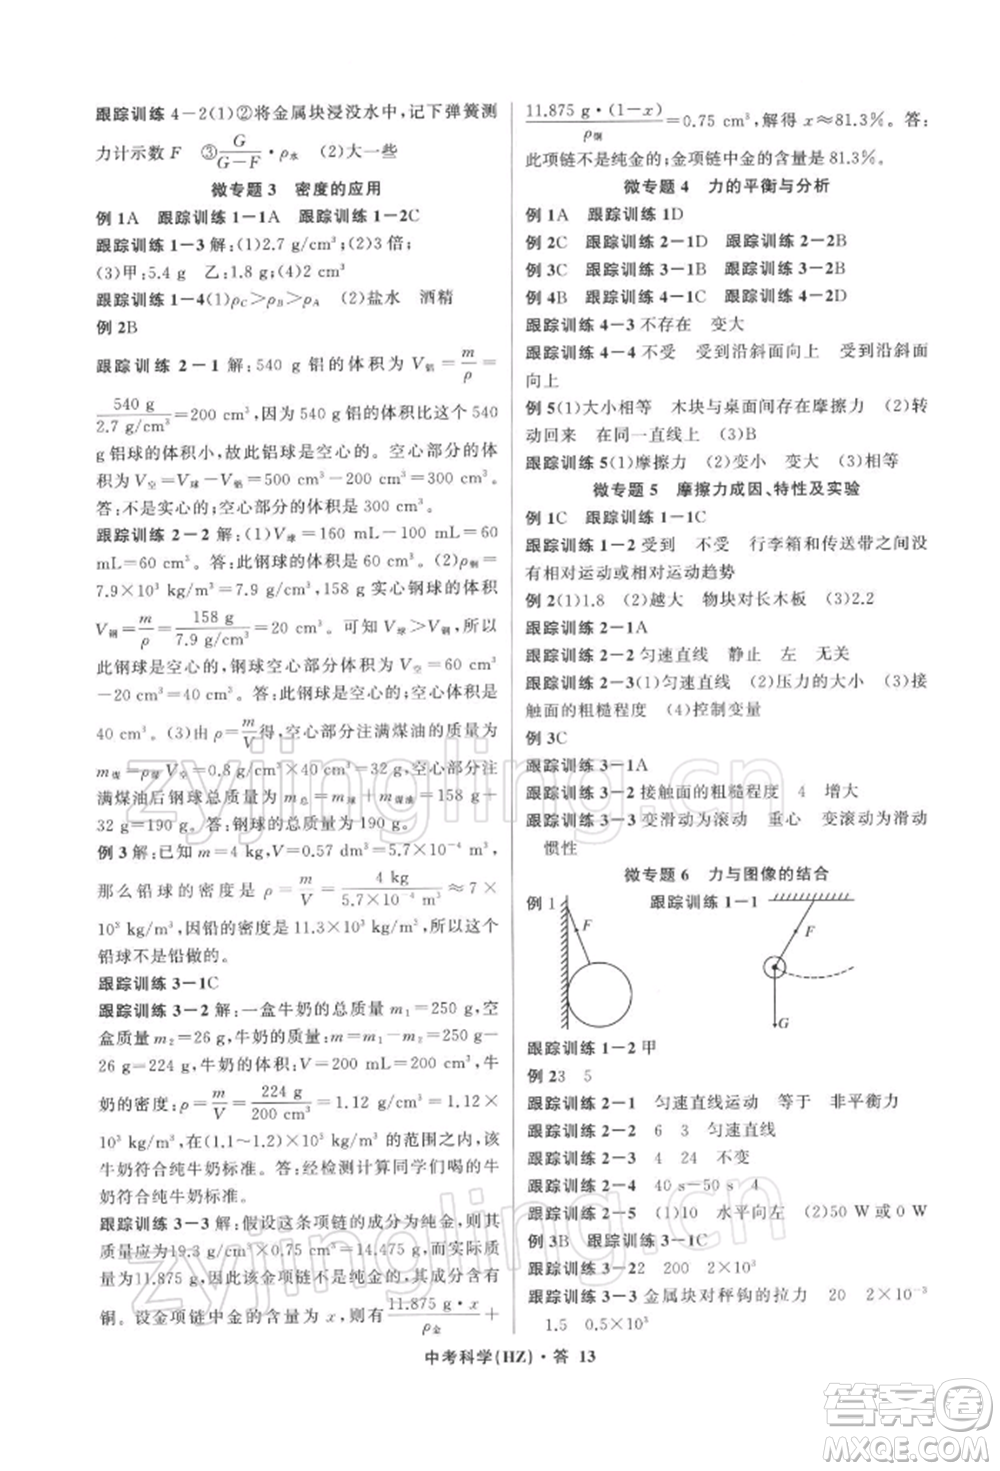 跟踪训练 4－2(1)②将金属块浸没水中，记下弹簧测
力计示数 F　③G/(G－F)·ρ水　(2)大一些
微专题 3　密度的应用
例 1A　跟踪训练 1－1A　跟踪训练 1－2C
跟踪训练 1－3 解：(1)2.7 g/cm³；(2)3 倍；
(3)甲：5.4 g　乙：1.8 g；(4)2 cm³
跟踪训练 1－4(1)ρC＞ρB＞ρA　(2)盐水　酒精
例 2B
跟踪训练 2－1 解：540 g 铝的体积为 V铝＝m/ρ＝
540 g/2.7 g/cm³＝200 cm³，因为 540 g 铝的体积比这个 540
g 铝球的体积小，故此铝球是空心的；空心部分的体
积为 V空＝V球－V铝＝500 cm³－200 cm³＝300 cm³。
答：不是实心的；空心部分的体积是 300 cm³。
跟踪训练 2－2 解：(1)V球＝160 mL－100 mL＝60
mL＝60 cm³。答：此钢球的体积是 60 cm³。(2)ρ钢＝
7.9×10³ kg/m³＝7.9 g/cm³，158 g 实心钢球的体积
V钢＝m/ρ＝158 g/7.9 g/cm³＝20 cm³。可知 V球＞V钢，所以
此钢球是空心的，钢球空心部分的体积 V空＝60 cm³
－20 cm³＝40 cm³。答：此钢球是空心的，空心体积是
40 cm³。(3)由 ρ＝m/V得，空心部分注满煤油的质量为
m煤＝ρ煤V空＝0.8 g/cm³×40 cm³＝32 g，空心部分注
满煤油后钢球总质量为 m总＝m球＋m煤油＝158 g＋
32 g＝190 g。答：钢球的总质量应为 190 g。
例 3 解：已知 m＝4 kg，V＝0.57 dm³＝5.7×10⁻⁴ m³，
那么铅球的密度 ρ＝m/V＝4 kg/5.7×10⁻⁴ m³≈7×
10³ kg/m³，因铅的密度是 11.3×10³ kg/m³，所以此
铅球不是铅做的。
跟踪训练 3－1C
跟踪训练 3－2 解：一盒牛奶的总质量 m₁＝250 g，空
盒质量 m₂＝26 g，牛奶的质量 m＝m₁－m₂＝250 g－
26 g＝224 g，牛奶的体积：V＝200 mL＝200 cm³，牛
奶的密度：ρ＝m/V＝224 g/200 cm³＝1.12 g/cm³＝1.12×
10³ kg/m³，在(1.1～1.2)×10³ kg/m³ 的范围之内，该
牛奶符合纯牛奶标准。答：经检测计算同学们喝的牛
奶符合纯牛奶标准。
跟踪训练 3－3 解：假设这条项链的成分为纯金，则其
质量应为19.3 g/cm³×0.75 cm³＝14.475 g，而实际质
量为11.875 g，因此该金项链不是纯金的，其中混有
铜。设金项链中金的含量为 x，则有11.875 g·x/ρ金＋
11.875 g·(1－x)/ρ铜＝0.75 cm³，解得 x≈81.3%。答：
此项链不是纯金的；金项链中金的含量是 81.3%。
微专题 4　力的平衡与分析
例 1A　跟踪训练 1D
例 2C　跟踪训练 2－1D　跟踪训练 2－2B
例 3C　跟踪训练 3－1B
例 4B　跟踪训练 4－1B　跟踪训练 4－2D
跟踪训练 4－3 不存在　变大
跟踪训练 4－4 不受　受到沿斜面向上　受到沿斜面
向上
例 5(1)大小相等　木块与桌面间存在摩擦力　(2)转
动回来　在同一直线上　(3)B
跟踪训练 5(1)摩擦力　(2)变小　变大　(3)相等
微专题 5　摩擦力成因、特性及实验
例 1C　跟踪训练 1－1C
跟踪训练 1－2 受到　不受　行李箱和传送带之间没
有相对运动或相对运动趋势
例 2(1)1.8　(2)越大　物块对长木板　(3)2.2
跟踪训练 2－1A
跟踪训练 2－2 匀速直线　静止　左　无关
跟踪训练 2－3(1)匀速直线　(2)压力的大小　(3)接
触面的粗糙程度　(4)控制变量
例 3C
跟踪训练 3－1A
跟踪训练 3－2 接触面的粗糙程度　4　增大
跟踪训练 3－3 变滑动为滚动　重心　变滚动为滑动
惯性
微专题 6　力与图像的结合
例 1　跟踪训练 1－1
F
F
G
跟踪训练 1－2 甲
例 23　5
跟踪训练 2－1　匀速直线运动　等于　非平衡力
跟踪训练 2－2　6　3　匀速直线
跟踪训练 2－3　4　24　不变
跟踪训练 2－4　40 s－50 s　4
跟踪训练 2－5　(1)10　水平向左　(2)50 W 或 0 W
例 3B　跟踪训练 3－1C
跟踪训练 3－22　200　2×10³
跟踪训练 3－3 金属块对秤钩的拉力　20　2×10⁻³
1.5　0.5×10³
中考科学(HZ)·答　13
zyjingling.cn
zyjingling.cn
答案圈
MXQE.COM